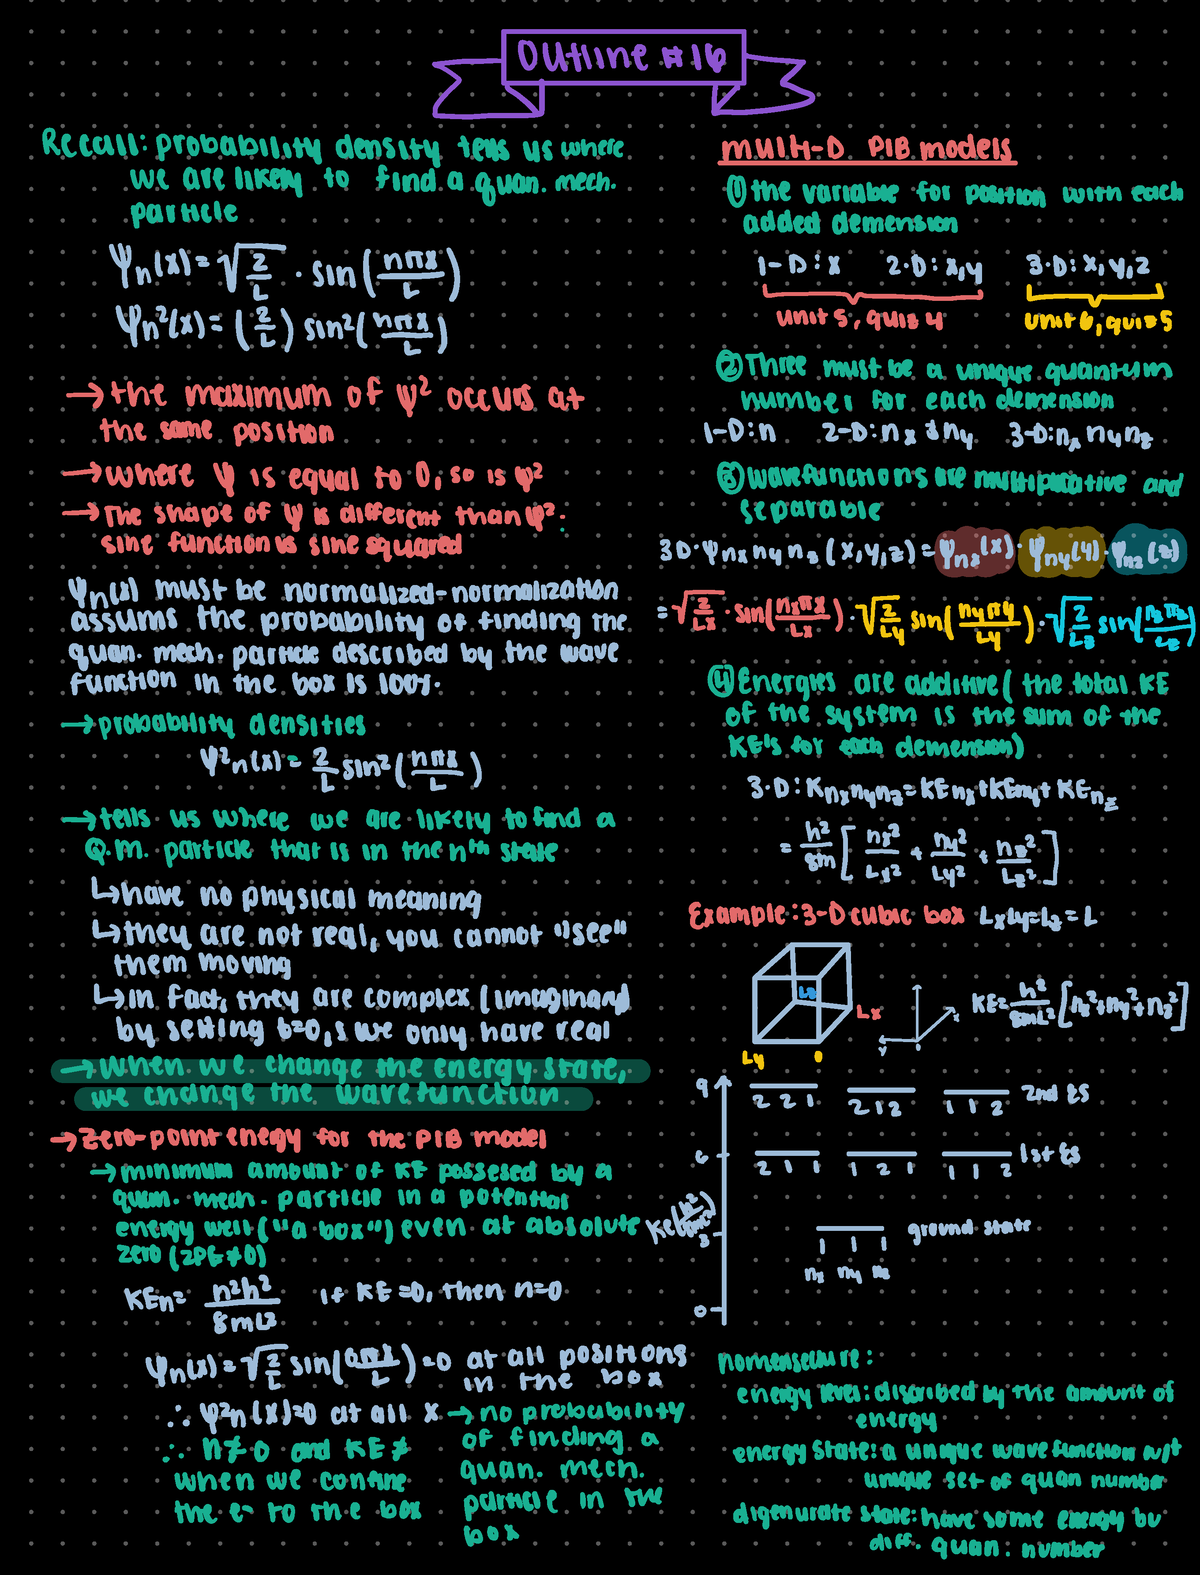 Outline #16
Recall: probability density tells us where
we are likely to find a quan. mech.
particle
Ψn(x) = √(2/L) · sin(nπx/L)
Ψn²(x) = (2/L) sin²(nπx/L)
→ the maximum of Ψ² occurs at
the same position
→ where Ψ is equal to 0, so is Ψ²
→ The shape of Ψ is different than Ψ².
sine function is sine squared
Ψn(x) must be normalized - normalization
assumes the probability of finding the
quan. mech. particle described by the wave
function in the box is 100%.
→ probability densities
Ψ²n(x) = 2/L sin²(nπx/L)
→ tells us where we are likely to find a
Q.M. particle that is in the nth state
↳ have no physical meaning
↳ they are not real, you cannot "see"
them moving
↳ in fact, they are complex (imaginary)
by setting b=0, s we only have real
→ When we change the energy state,
we change the wavefunction
→ Zero-point energy for the PIB model
→ minimum amount of KE possesed by a
quan. mech. particle in a potential
energy well ("a box") even at absolute
zero (ZPE ≠ 0)
KEn = n²h²/8mL² if KE = 0, then n=0
Ψn(x) = √(2/L) sin(0πx/L) = 0 at all positions
in the box
∴ Ψ²n(x)=0 at all x → no probability
of finding a
quan. mech.
particle in the
box
∴ n ≠ 0 and KE ≠
when we confine
the e- to the box
Multi-D PIB models
① the variable for position with each
added demension
1-D: x 2-D: x,y 3-D: x,y,z
unit 5, quiz 4 unit 6, quiz 5
② Three must be a unique quantum
number for each demension
1-D: n 2-D: nx & ny 3-D: nx ny nz
③ wavefunctions are multiplicative and
separable
3D·Ψnx ny nz (x,y,z) = Ψnx(x) · Ψny(y) · Ψnz(z)
= √(2/Lx) · sin(nxπx/Lx) · √(2/Ly) sin(nyπy/Ly) · √(2/Lz) sin(nzπz/Lz)
④ Energies are additive ( the total KE
of the system is the sum of the
KE's for each demension)
3-D: Knxnynz = KEnx + KEny + KEnz
= h²/8m [nx²/Lx² + ny²/Ly² + nz²/Lz²]
Example: 3-D cubic box LxLy=Lz=L
Lz
Lx
Ly 0
z
y 0
KE = h²/8mL² [nx²+ny²+nz²]
9 2 2 1 2 1 2 1 1 2 2nd ES
6 2 1 1 1 2 1 1 1 2 1st ES
KE(h²/8mL²)
3 1 1 1 ground state
nx ny nz
0
nomenselure:
energy level: discribed by the amount of
energy
energy state: a unique wavefunction w/t
unique set of quan number
digenurate state: have some energy bu
diff. quan. number